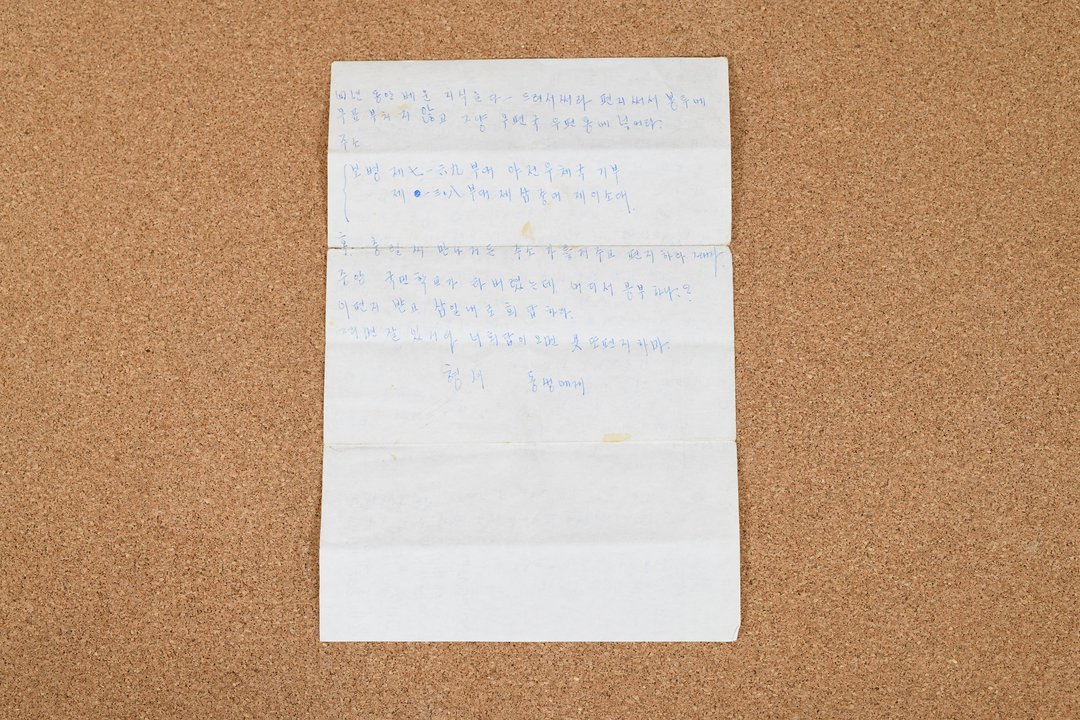 동안 배운 지식은 다 - 드려서써라 편지써서 봉투에
우표 부치지 않고 그냥 우편국 우편통에 넉어라.
주소
보병 제七一六九부대 야전우체국 기부
제 一三〇八부대 제삼중대 제이소대.
홍 씨 만나거든 주소 편지하라
중앙 국민학교가 타버렸는데 어디서 공부하나.
이편지 받고 삼일내로 회답하라.
그러면 잘 있거라 너회답이 오면 또편지하마.
형서 동생에게